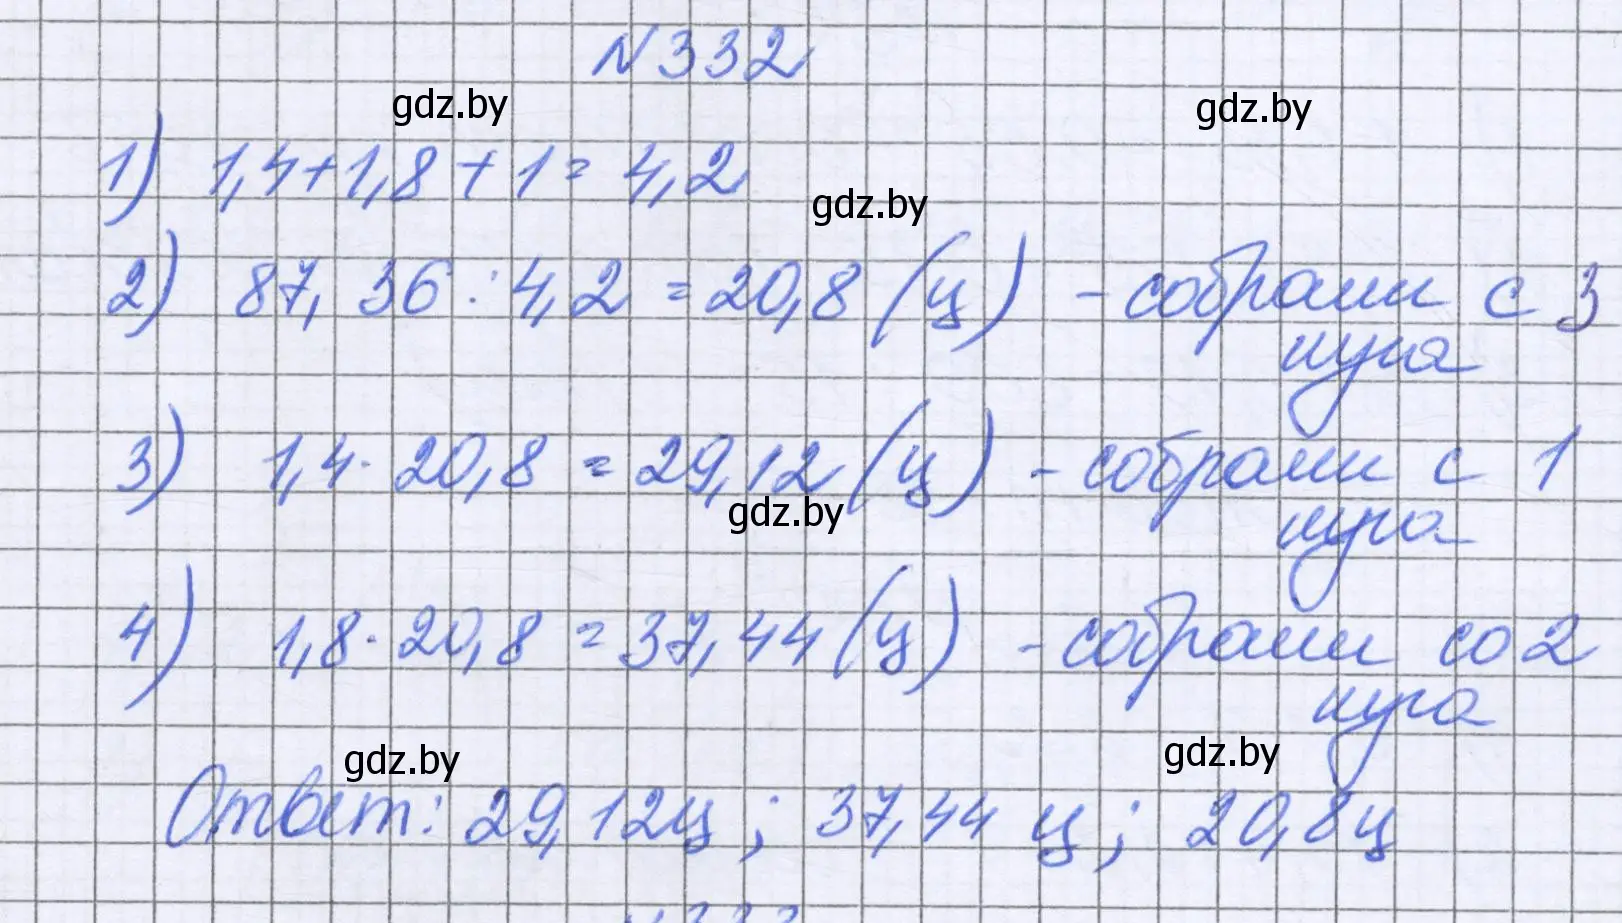 N 332
gdz.by
gdz.by
1) 1,4+1,8+1= 4,2
gdz.by
2) 87,36 : 4,2 = 20,8 (ц) - собрали с 3
луга
3) 1,4 · 20,8 = 29,12 (ц) - собрали с 1
gdz.by
луга
4) 1,8 · 20,8 = 37,44 (ц) - собрали со 2
луга
gdz.by
gdz.by
Ответ: 29,12ц ; 37,44 ц ; 20,8ц